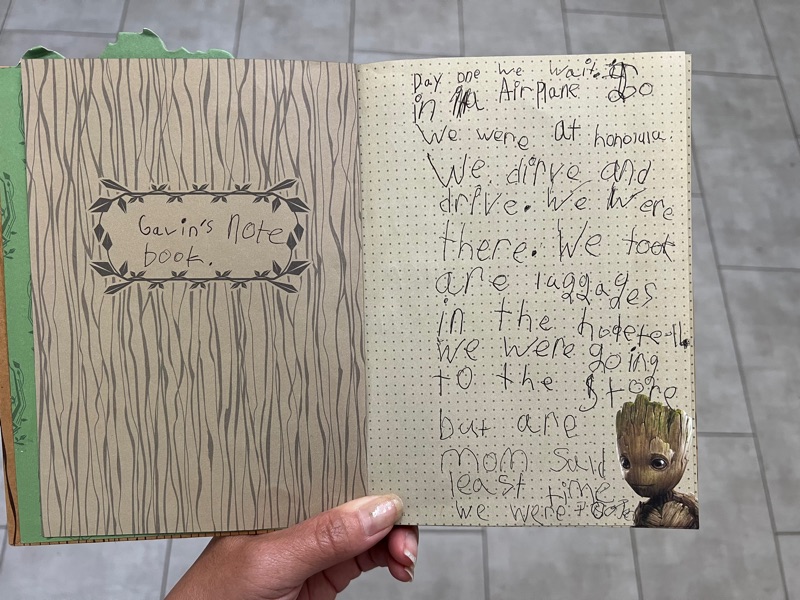 Gavin's note
book.
Day one we wait
in a Airplane So
We were at honolulu.
We dirve and
drive. We were
there. We took
are luggages
in the
we were going
to the store
but are
mom said
least time
we were